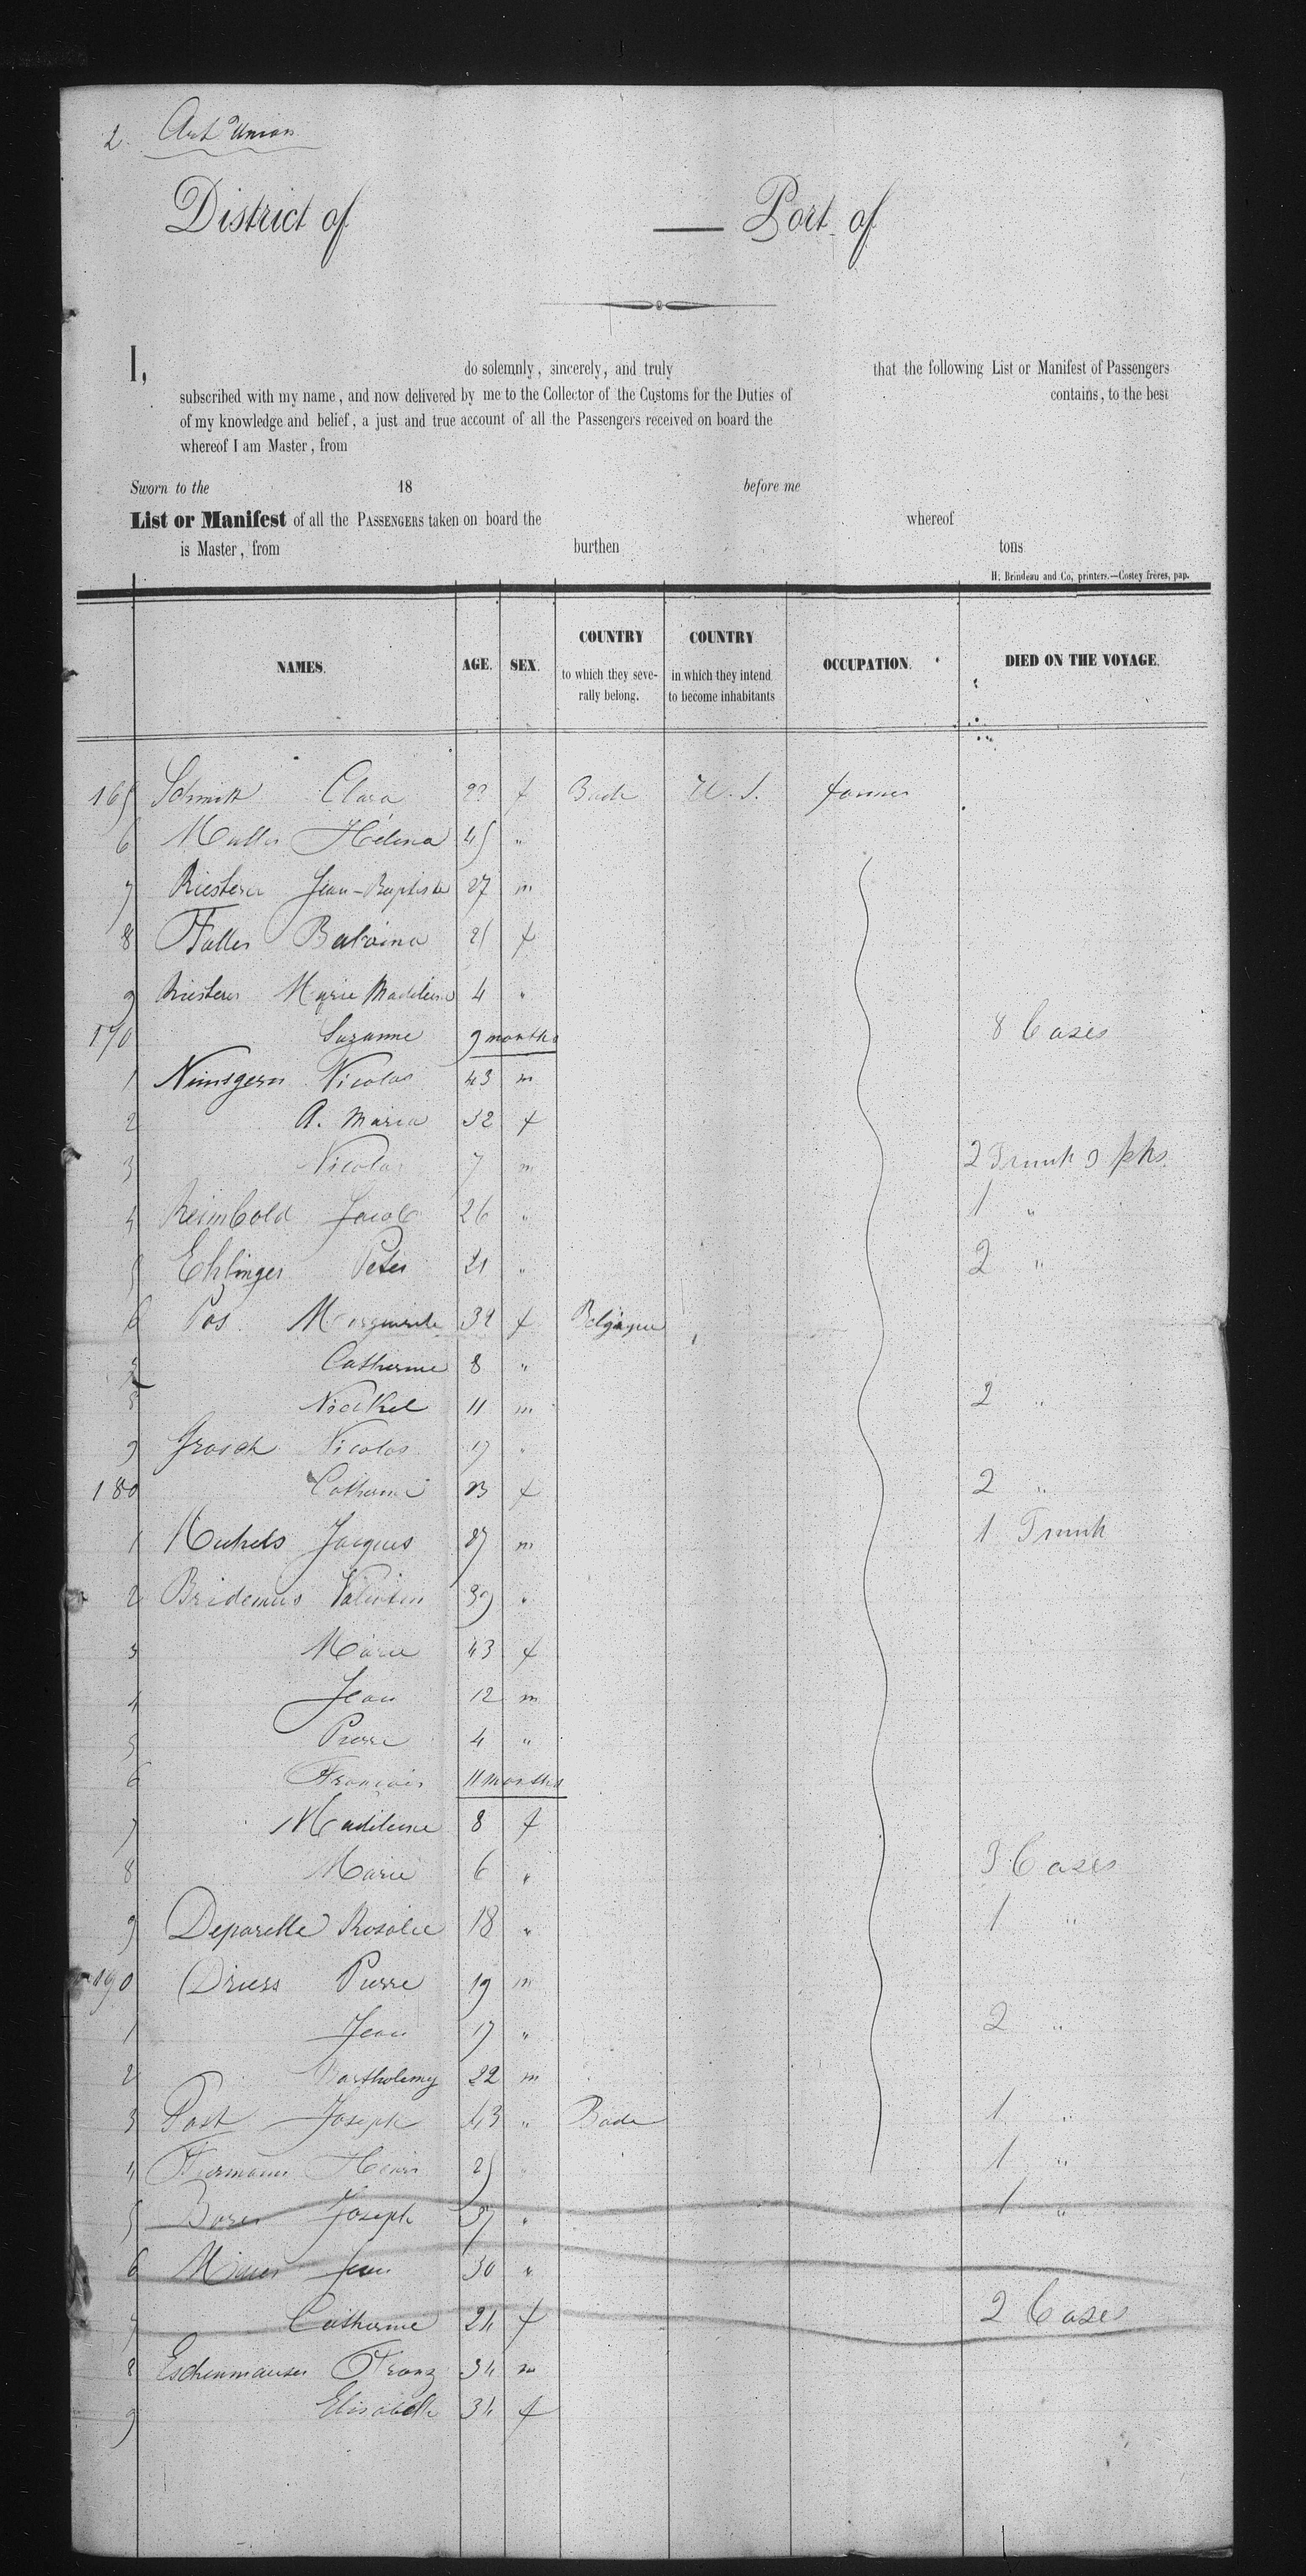 2. Art Union
District of — Port of
I, do solemnly, sincerely, and truly that the following List or Manifest of Passengers
subscribed with my name, and now delivered by me to the Collector of the Customs for the Duties of contains, to the best
of my knowledge and belief, a just and true account of all the Passengers received on board the
whereof I am Master, from
Sworn to the 18 before me
List or Manifest of all the PASSENGERS taken on board the whereof
is Master, from burthen tons
H. Brindeau and Co, printers.—Costey frères, pap.
NAMES. AGE. SEX. COUNTRY to which they severally belong. COUNTRY in which they intend to become inhabitants OCCUPATION. DIED ON THE VOYAGE.
165 Schmitt Clara 23 f Bade U. S. farmer
6 Muller Hélena 45 "
7 Riesterer Jean-Baptiste 27 m
8 Faller 21 f
9 Riesterer Marie Madeleine 4 "
170 Suzanne 9 months 8 Cases
1 Nimsgern Nicolas 43 m
2 A. Maria 32 f
3 Nicolas 7 m 2 Trunk 3 pks
4 Reimbold Jacob 26 " 1 "
5 Ehlinger Peter 21 " 2 "
6 Pos Marguerite 32 f Belgique
7 Catherine 8 "
8 Nickel 11 m 2 "
9 Grosch Nicolas 17 "
180 Catherine 23 f 2 "
1 Jacques 27 m 1 Trunk
2 Bridemus Valentin 39 "
3 Marie 43 f
4 Jean 12 m
5 Pierre 4 "
6 François 11 months
7 Madeleine 8 f
8 Marie 6 " 3 Cases
9 Deparelle Rosalie 18 " 1 "
190 Driess Pierre 19 m
1 Jean 17 " 2 "
2 Bartholemy 22 m
3 Post Joseph 43 " Bade 1 "
4 Henri 25 " 1 "
5 Joseph 37 " 1 "
6 Jean 30 "
7 Catherine 24 f 2 Cases
8 Eschenmauser Franz 34 m
9 Elisabeth 34 f